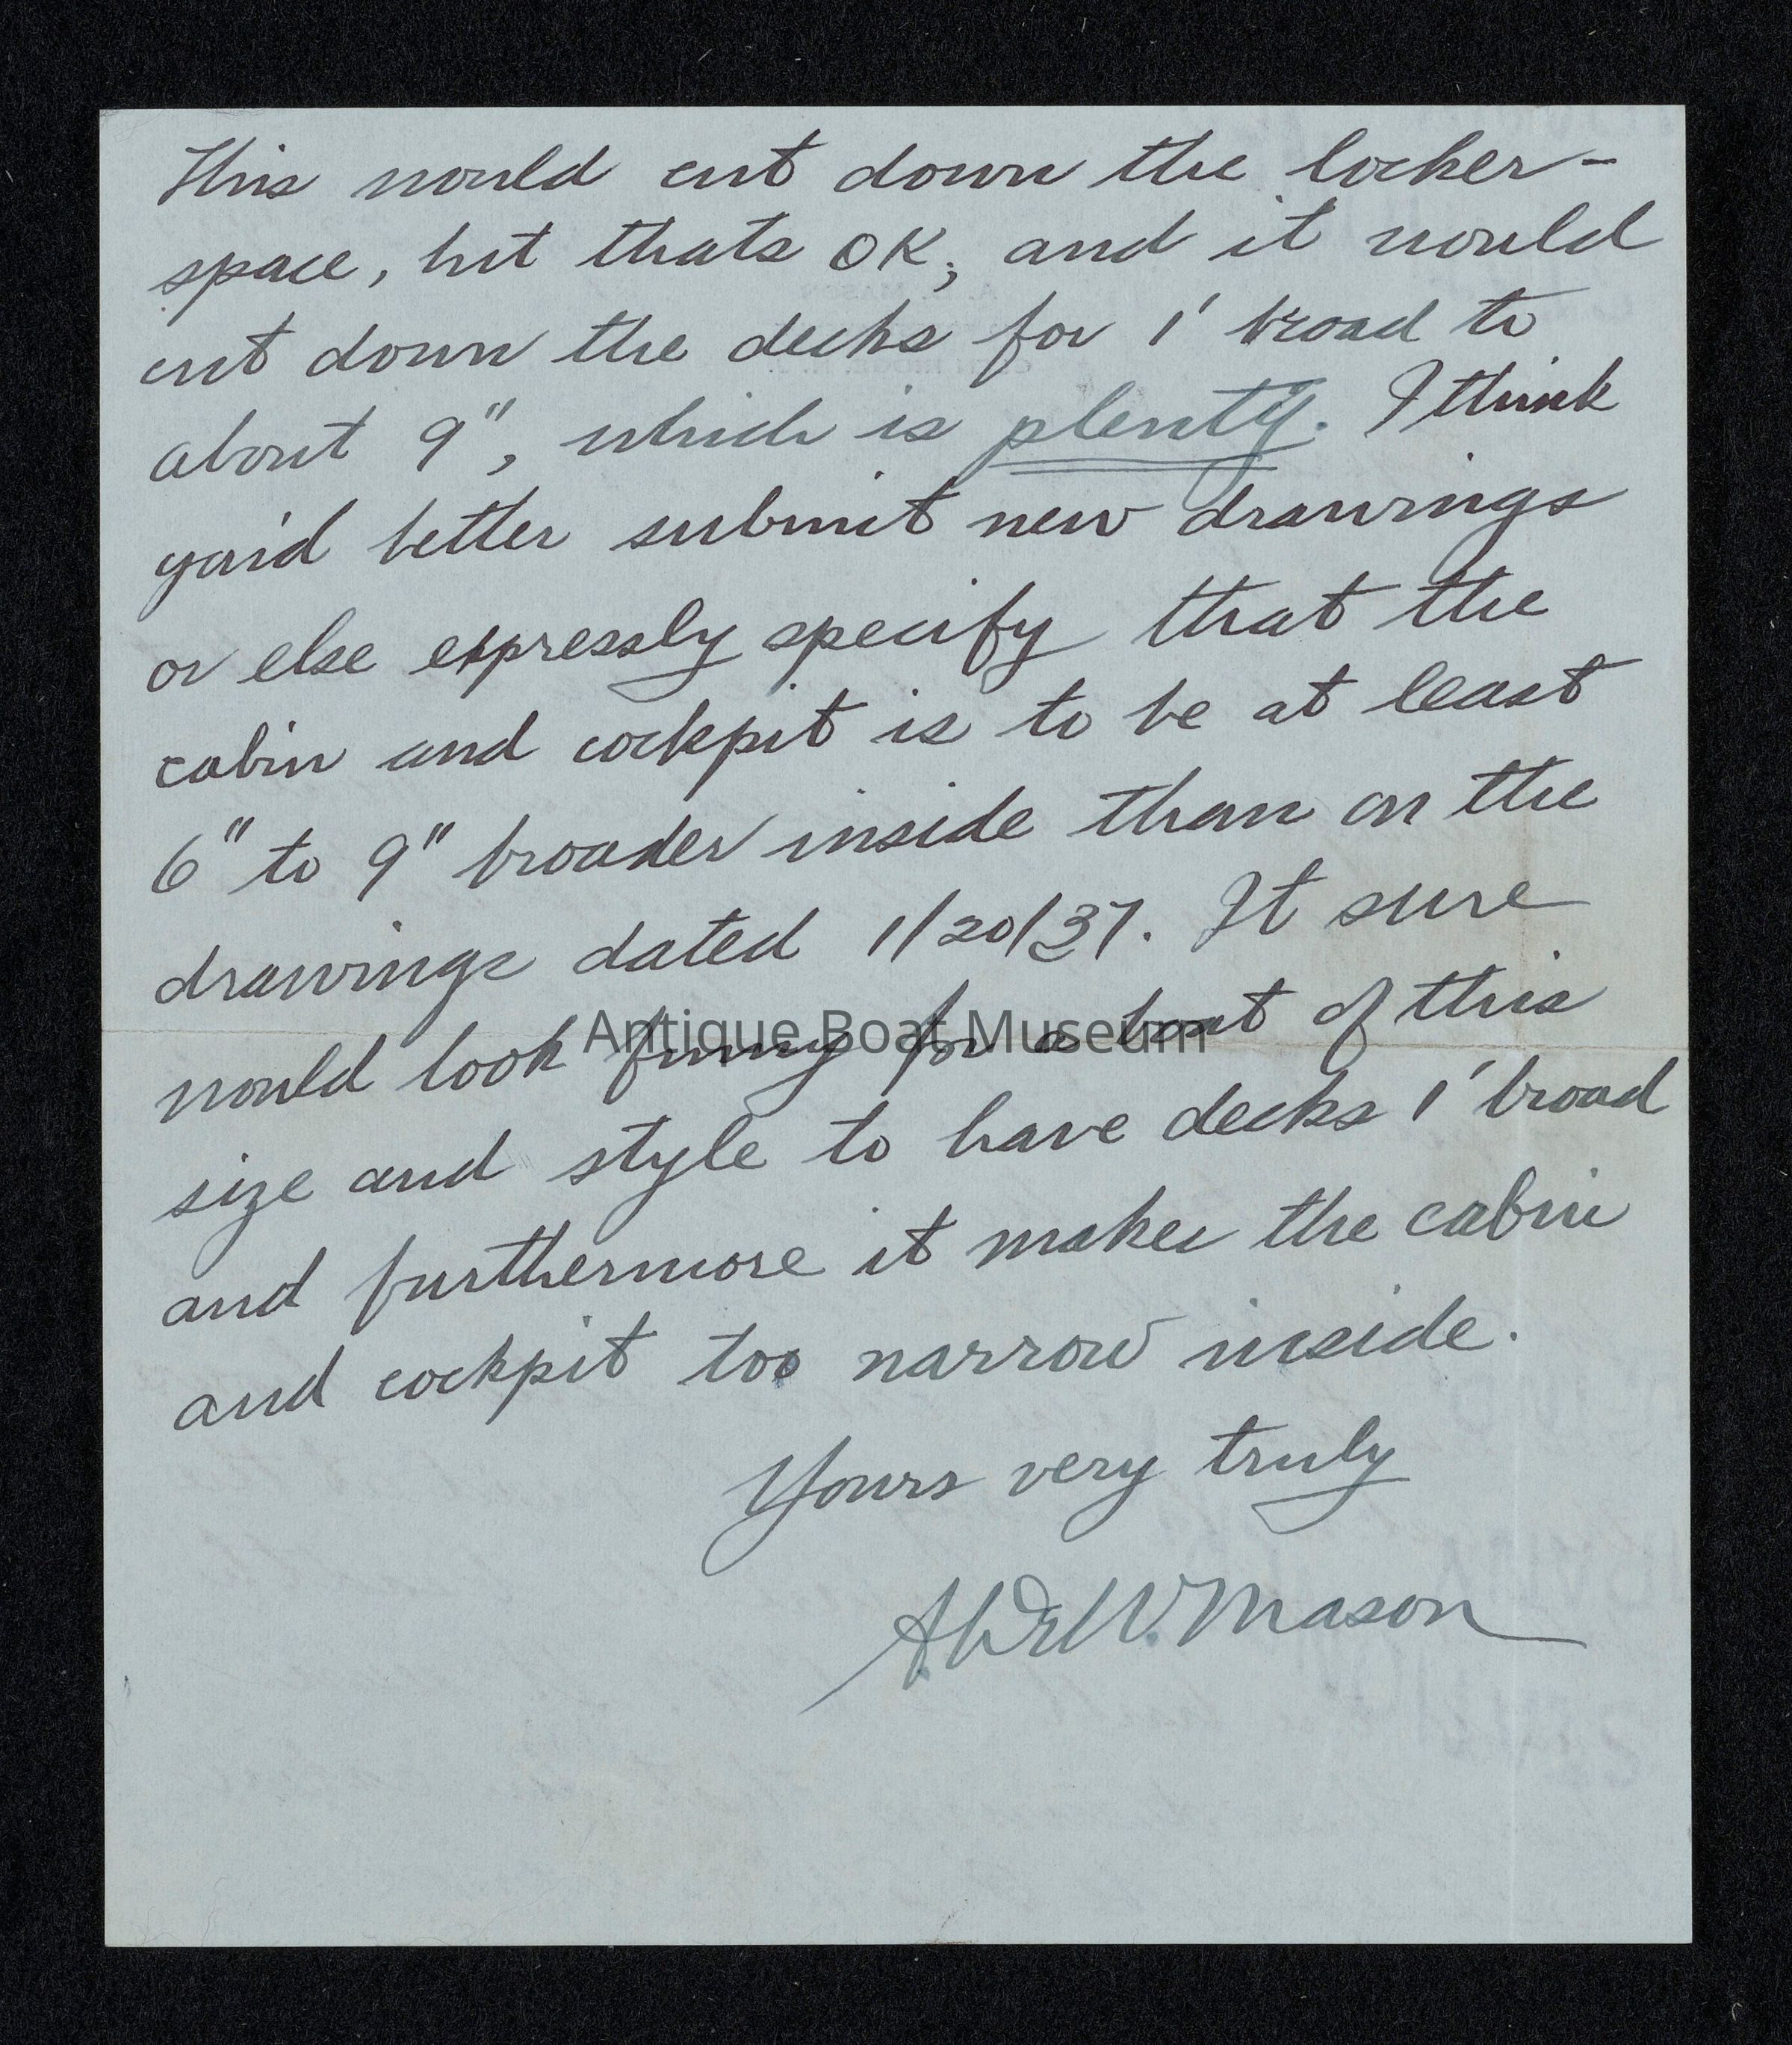 This would cut down the locker-
space, but thats OK; and it would
cut down the decks for 1' broad to
about 9", which is plenty. I think
you'd better submit new drawings
or else expressly specify that the
cabin and cockpit is to be at least
6" to 9" broader inside than on the
drawings dated 1/20/37. It sure
would look funny for a boat of this
Antique Boat Museum
size and style to have decks 1' broad
and furthermore it makes the cabin
and cockpit too narrow inside.
Yours very truly
Mason